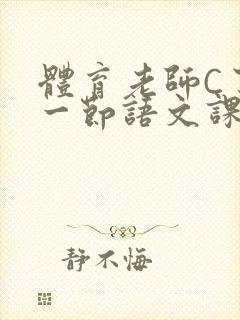 體育老師C
一節語文課
靜不悔